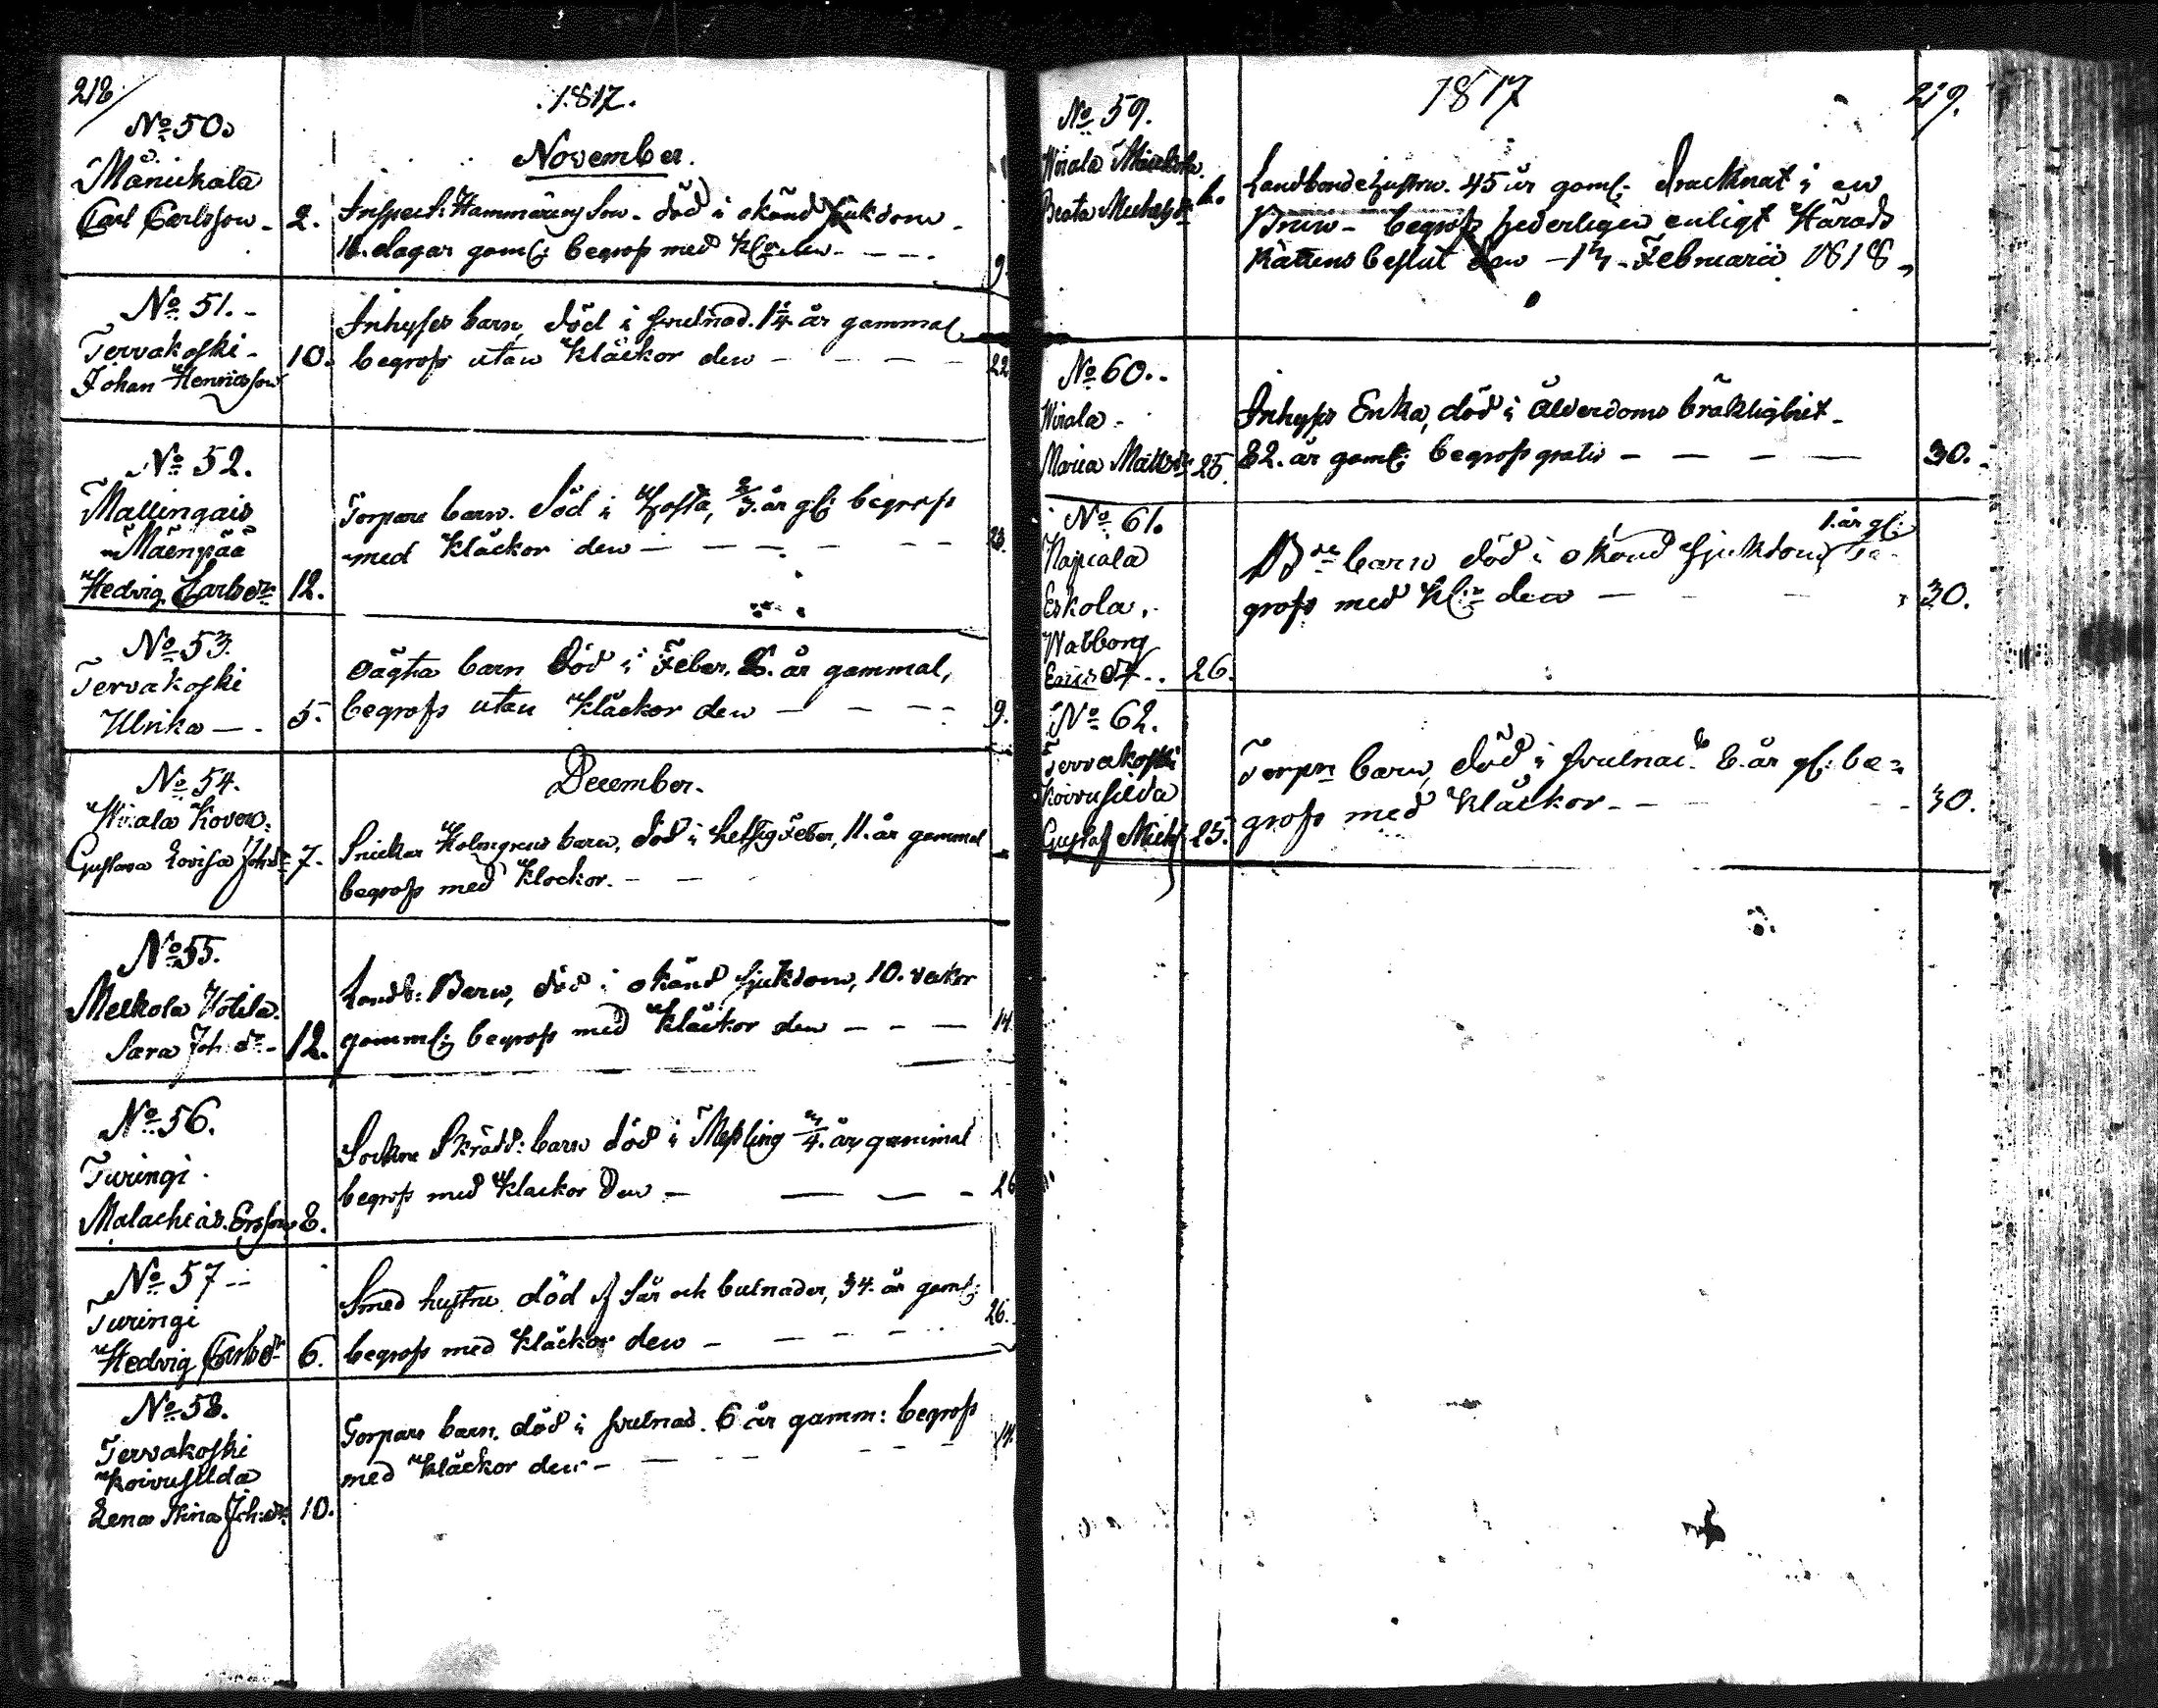 218
1817.
November.
No 50.
Mänikala
Carl Carlsson - 2. Inspect: Hammarens Son - död i okänd sjukdom -
11. dagar gaml: begrofs med Kl:r den - - - 9.
No 51. -
Tervakoski -
Johan Henricsson 10. Inhyses barn, död i svulnad. 1 1/4 år gammal
begrofs utan Kläckor den - - - - 22
No 52.
Mallingais
Mäenpää
Hedvig Carlsdr 12. Torpare barn. död i Hosta, 2/3 år gl: begrofs
med Kläckor den - - - - - - 23.
No 53.
Tervakoski
Ulrika - - 5. oägta barn död i Feber. 8. år gammal,
begrofs utan Kläckor den - - - - 9.
December.
No 54.
Wirala
Gustava Lovisa Joh:dr 7. Snickar Holmgrens barn, död i hetsig Feber, 11. år gammal
begrofs med Klockor. - -
No 55.
Melkola Hotila.
Sara Joh:dr - 12. Landb: Barn, död i okänd sjukdom, 10. vekor
gamml: begrofs med Kläckor den - - - 14.
No 56.
Turingi.
Malachias Ersson 8. Sockne Skrädd: barn död i Messling 3/4. år gammal
begrofs med Klackor den - - - - 26
No 57 --
Turingi
Hedvig Carlsdr 6. Smed hustru död af Sår och bulnader, 34. år gaml:
begrofs med Kläckor den - - - - 26.
No 58.
Tervakoski
Koivusilda
Lena Stina Joh:dr 10. Torpare barn. död i svulnad. 6 år gamm: begrofs
med Kläckor den - - - - 14.
1817
219.
No 59.
Wirala
Beata Michelsdr Landbonde hustru. 45 år gaml. Drucknat i en
Brunn - begrofs hederligen enligt Härads
Rättens beslut den - Februarii 1818 -
No 60. -
Wirala -
Maria Mattsdr 25. Inhyses Enka, död i Ålderdoms bräklighet -
82. år gaml: begrofs gratis - - - - 30.
No 61.
Napiala
Eskola.
Walborg
Ericsdr. 26. B:de barn död i okänd sjukdom, 1. år gl: be-
grofs med Kl:r den - - - 30.
No 62.
Tervakoski
Koivusilda
Gustaf Mich: 25. Torpr barn, död i svulnad. 8. år gl: be=
grofs med Kläckor - - - 30.